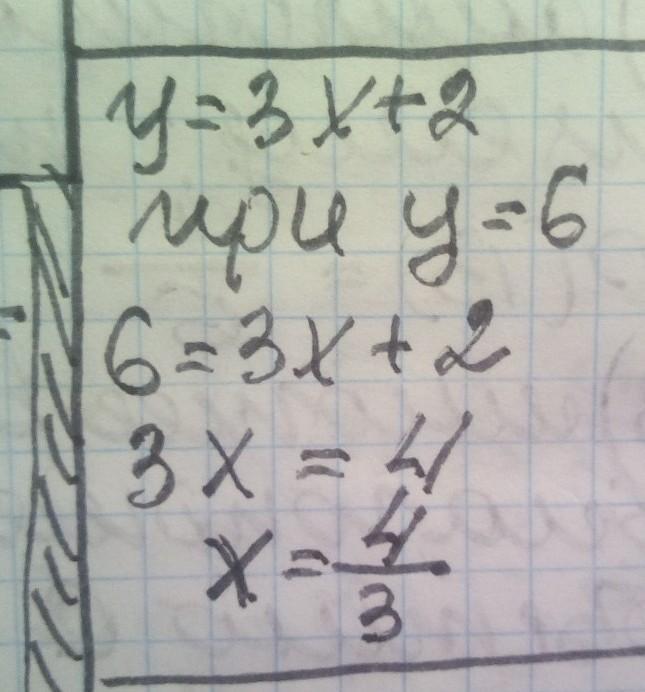 y=3x+2
при y=6
6=3x+2
3x=4
x=4/3